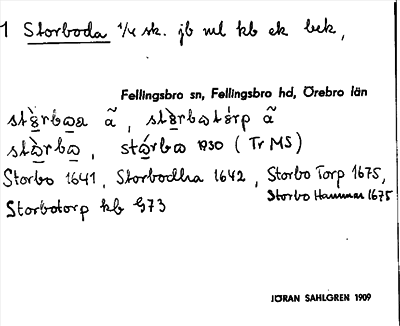 1 Storboda 1/4 sk. jb ml kb ek bek,
Fellingsbro sn, Fellingsbro hd, Örebro län
stǝ̀rbɷa ã, stǝ̀rbɷtǝ́rp ã
stɷ̀rbɷ, stɷ́rbɷ 1930 (Tr MS)
Storbo 1641, Storbodha 1642, Storbo Torp 1675,
Storbo Hammar 1675
Storbotorp kb 973
JÖRAN SAHLGREN 1909